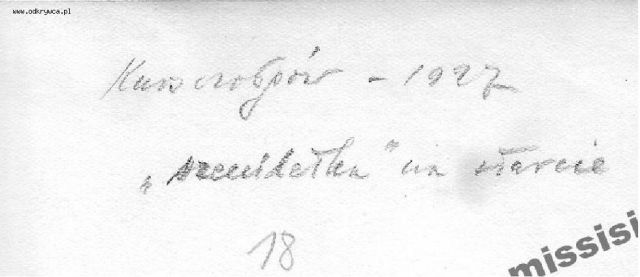 www.odkrywca.pl
Kurs czołgów – 1927
„szenidetka" na starcie
18
missisi